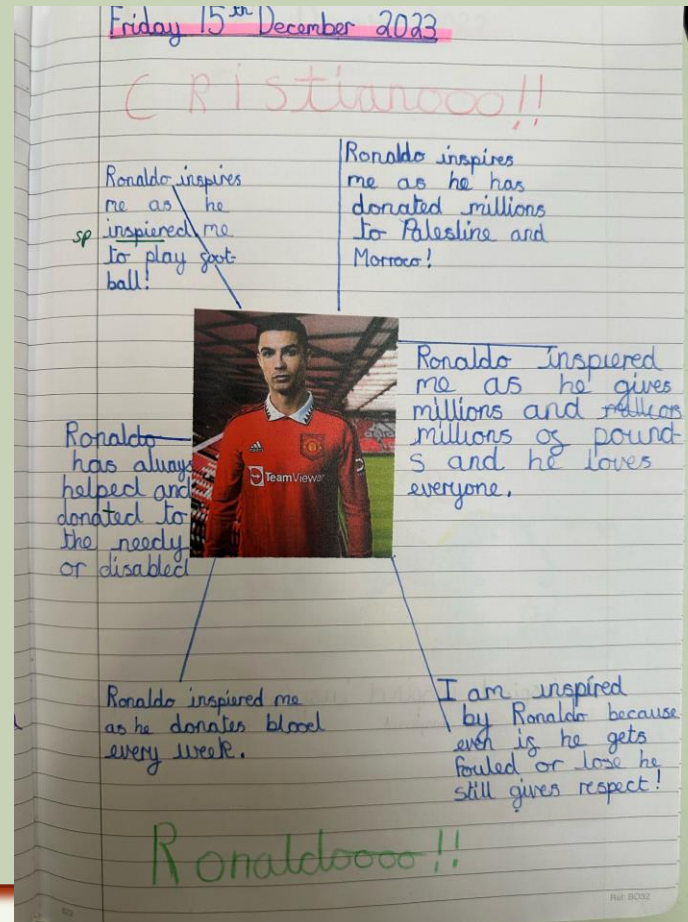 Friday 15th December 2023
CRistianooo!!
Ronaldo inspires
me as he
sp inspiered me
to play foot-
ball!
Ronaldo inspires
me as he has
donated millions
to Palestine and
Morroco!
Ronaldo Inspiered
me as he gives
millions and millions
millions of pound-
s and he loves
everyone.
Ronaldo
has always
helped and
donated to
the needy
or disabled
TeamViewer
Ronaldo inspiered me
as he donates blood
every week.
I am inspired
by Ronaldo because
even if he gets
fouled or lose he
still gives respect!
Ronaldoooo!!
Ref: BO32